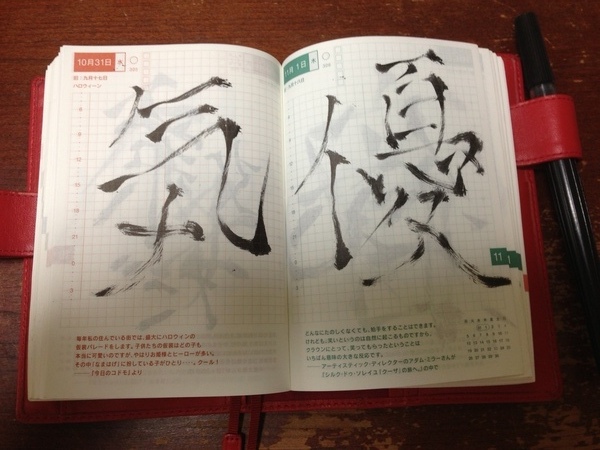 10月31日 水
旧:九月十七日
ハロウィーン
氣
毎年私の住んでいる街では、盛大にハロウィンの
仮装パレードをします。子供たちの仮装はどの子も
本当に可愛いのですが、やはりお姫様とヒーローが多い。
その中「なまはげ」に扮している子がひとり……。クール！
——「今日のコドモ」より
11月1日 木
優
11
1
どんなにたのしくなくても、拍手をすることはできます。
けれども、笑いというのは自然に起こるものですから、
クラウンにとって、笑ってもらったということは
いちばん の大きな反応です。
——アーティスティック・ディレクターのアダム・ミラーさんが
『シルク・ドゥ・ソレイユ「クーザ」の 。』の中で